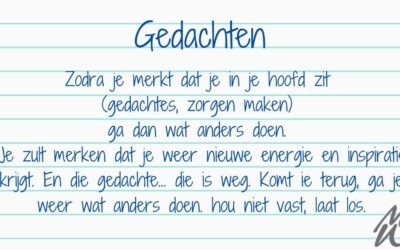 Gedachten
Zodra je merkt dat je in je hoofd zit
(gedachtes, zorgen maken)
ga dan wat anders doen.
Je zult merken dat je weer nieuwe energie en inspirati
krijgt. En die gedachte... die is weg. Komt ie terug, ga je
weer wat anders doen. hou niet vast, laat los.